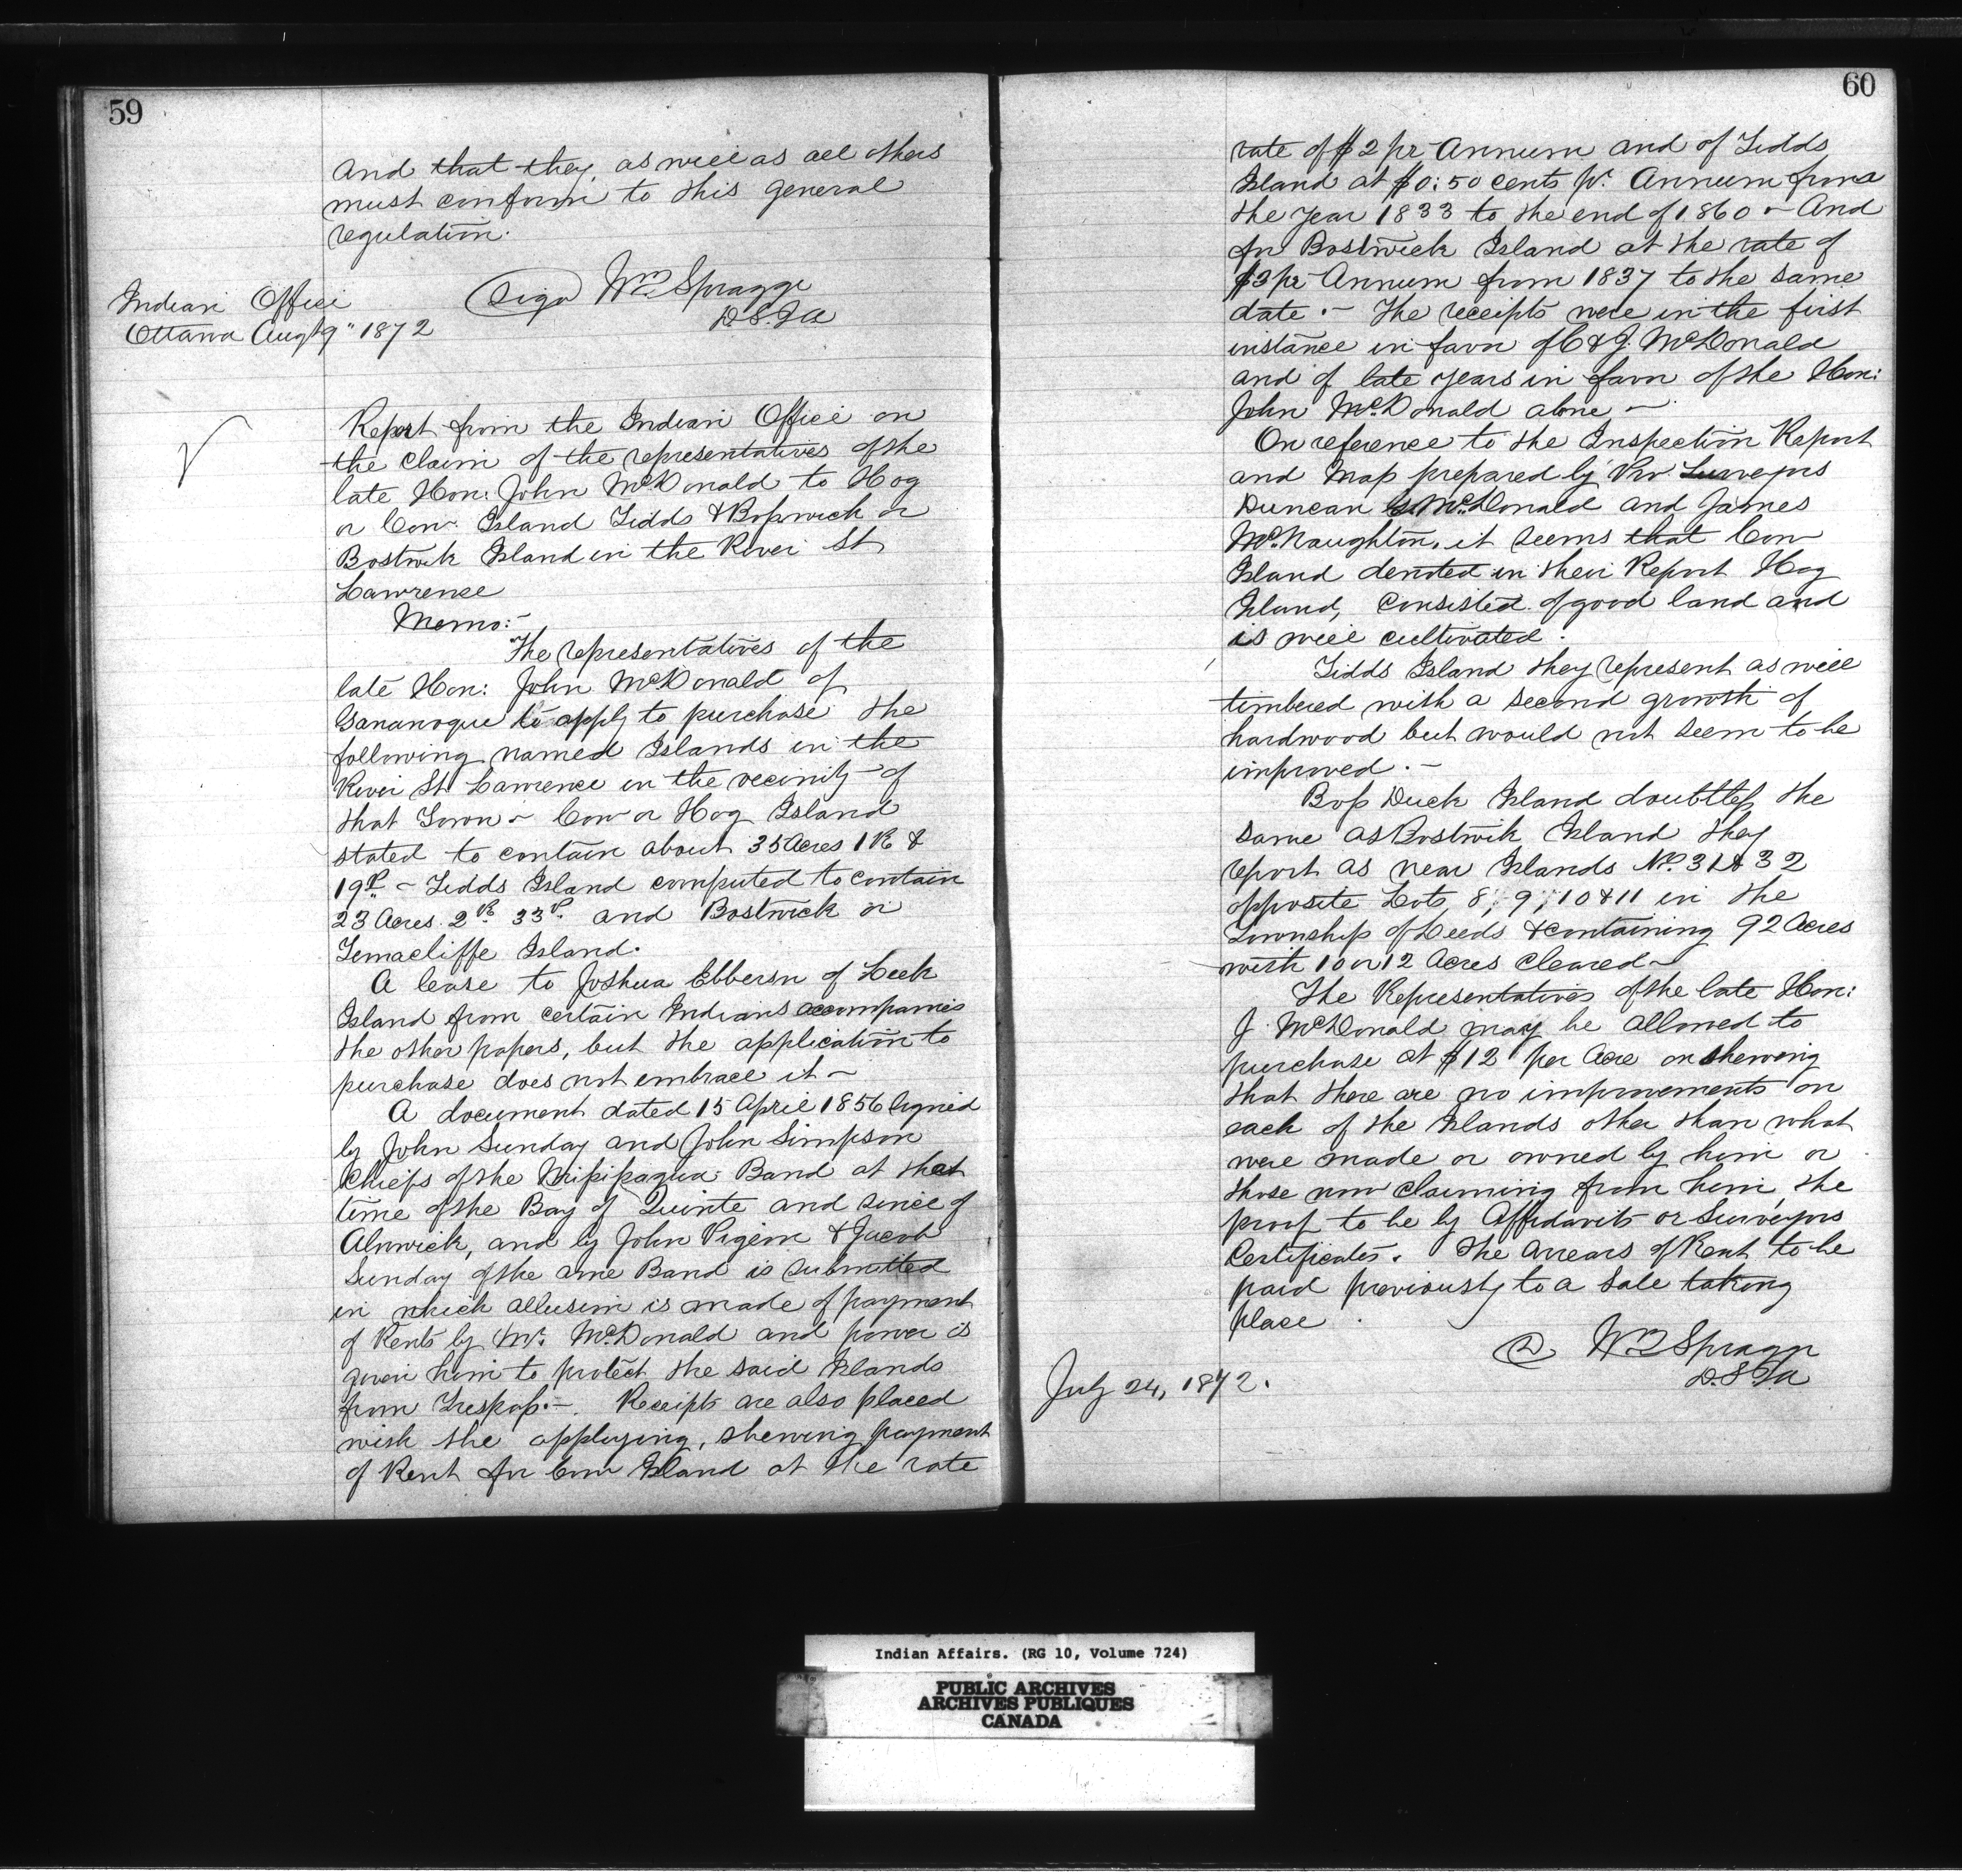 59
and that they, as well as all others
must conform to this general
regulation.
(Sigd) Wm Spragge
D.S.I.A
Indian Office
Ottawa Augt 9" 1872
Report from the Indian Office on
the claim of the representatives of the
late Hon: John McDonald to Hog
or Cow Island Tidds & Bosswick or
Bostwik Island in the River St
Lawrence
Memo:-
The representatives of the
late Hon: John McDonald of
Gananoque to apply to purchase the
following named Islands in the
River St Lawrence in the vecinity of
that Town - Cow or Hog Island
stated to contain about 35 Acres 1 R &
19P - Tidds Island computed to contain
23 Acres 2R 33P. and Bostwick or
Island.
A lease to Joshua Ebberson of Leek
Island from certain Indians accompanies
the other papers, but the application to
purchase does not embrace it -
A document dated 15 April 1856 signed
by John Sunday and John Simpson
Chiefs of the Missisagua Band at that
time of the Bay of Quinte and since of
Alnwick, and by John Pigeon & Jacob
Sunday of the same Band is submitted
in which allusion is made of payment
of Rents by Mr. McDonald and power is
given him to protect the said Islands
from Trespass. - Receipts are also placed
with the applying, shewing payment
of Rent for Cow Island at the rate
60
rate of $2 pr Annum and of Tidds
Island at $0:50 cents pr. Annum from
the year 1833 to the end of 1860 - And
for Bostwick Island at the rate of
$3 pr Annum from 1837 to the same
date. - The receipts were in the first
instance in favor of C & J. McDonald
and of late years in favor of the Hon:
John McDonald alone -
On reference to the Inspection Report
and Map prepared by Prov. Surveyors
Duncan McDonald and James
McNaughton, it seems that Cow
Island denoted in their Report Hog
Island, consisted of good land and
is well cultivated.
Tidds Island they represent as well
timbered with a second growth of
hardwood but would not seem to be
improved. -
Boss Duck Island doubtless the
same as Bostwik Island they
report as near Islands No. 31 & 32
opposite Lots, 8, 9, 10 & 11 in the
Township of Leeds & containing 92 Acres
with 10 or 12 Acres cleared -
The Representatives of the late Hon:
J. McDonald may be allowed to
purchase at $12 per Acre on shewing
that there are no improvements on
each of the Islands other than what
were made or owned by him or
those now claiming from him, the
proof to be by Affidavits or Surveyors
Certificates. The arrears of Rent to be
paid previously to a Sale taking
place.
(S) Wm Spragge
D.S.I.A
July 24, 1872.
Indian Affairs. (RG 10, Volume 724)
PUBLIC ARCHIVES
ARCHIVES PUBLIQUES
CANADA